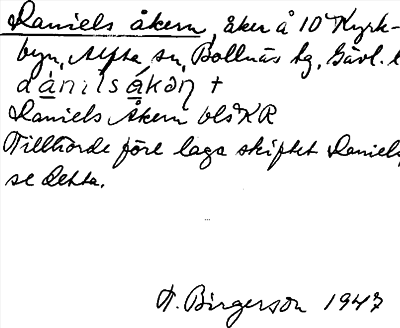 Daniels åkern, åker å 10 Kyrk-
byn, Alfta sn, Bollnäs tg, Gävl. l
dánilsákəṇ +
Daniels Åkern bls KR
Tillhörde före laga skiftet Daniels,
se detta.
H. Birgerson 1947